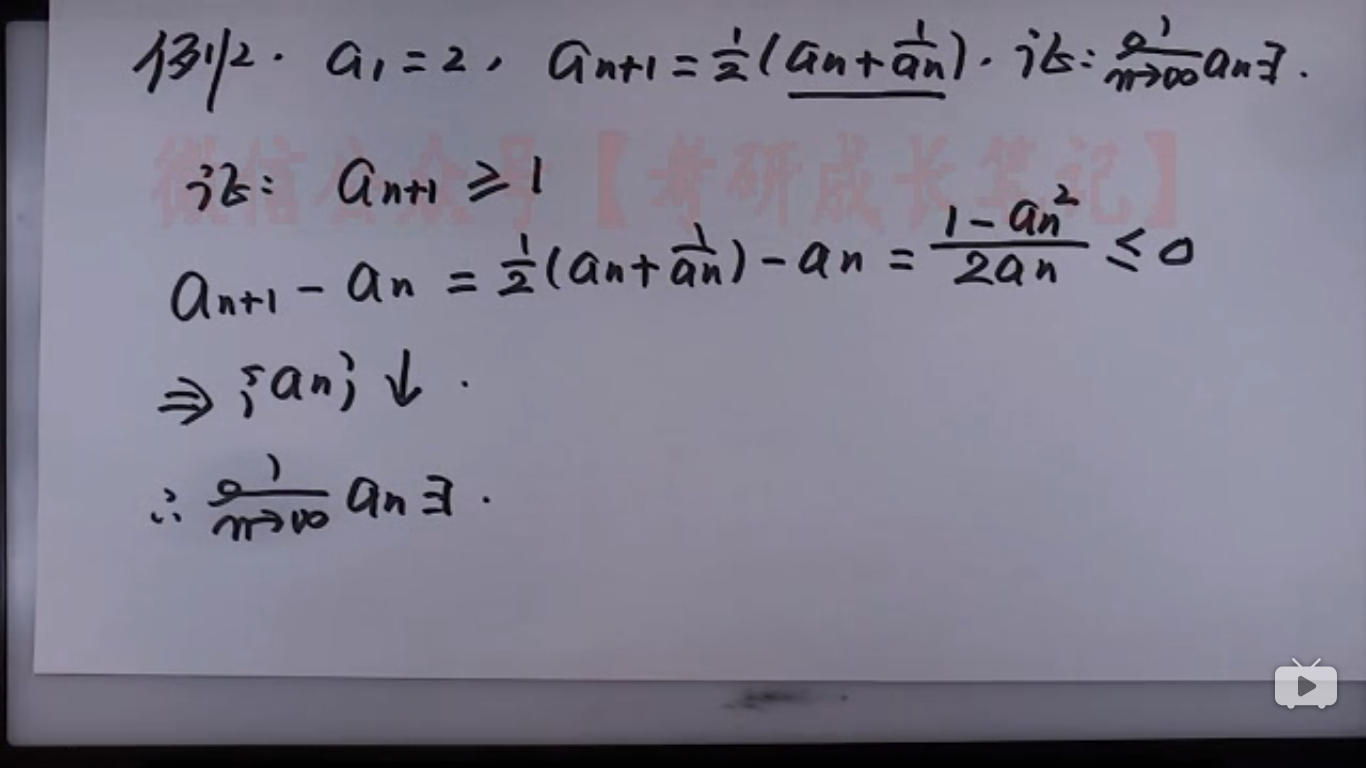 例2. a₁=2, aₙ₊₁=½(aₙ+1/aₙ). 证: lim n→∞ aₙ∃.
微信公众号【考研成长笔记】
证: aₙ₊₁ ≥ 1
aₙ₊₁ - aₙ = ½(aₙ+1/aₙ) - aₙ = (1-aₙ²)/(2aₙ) ≤ 0
⇒ {aₙ}↓.
∴ lim n→∞ aₙ∃.